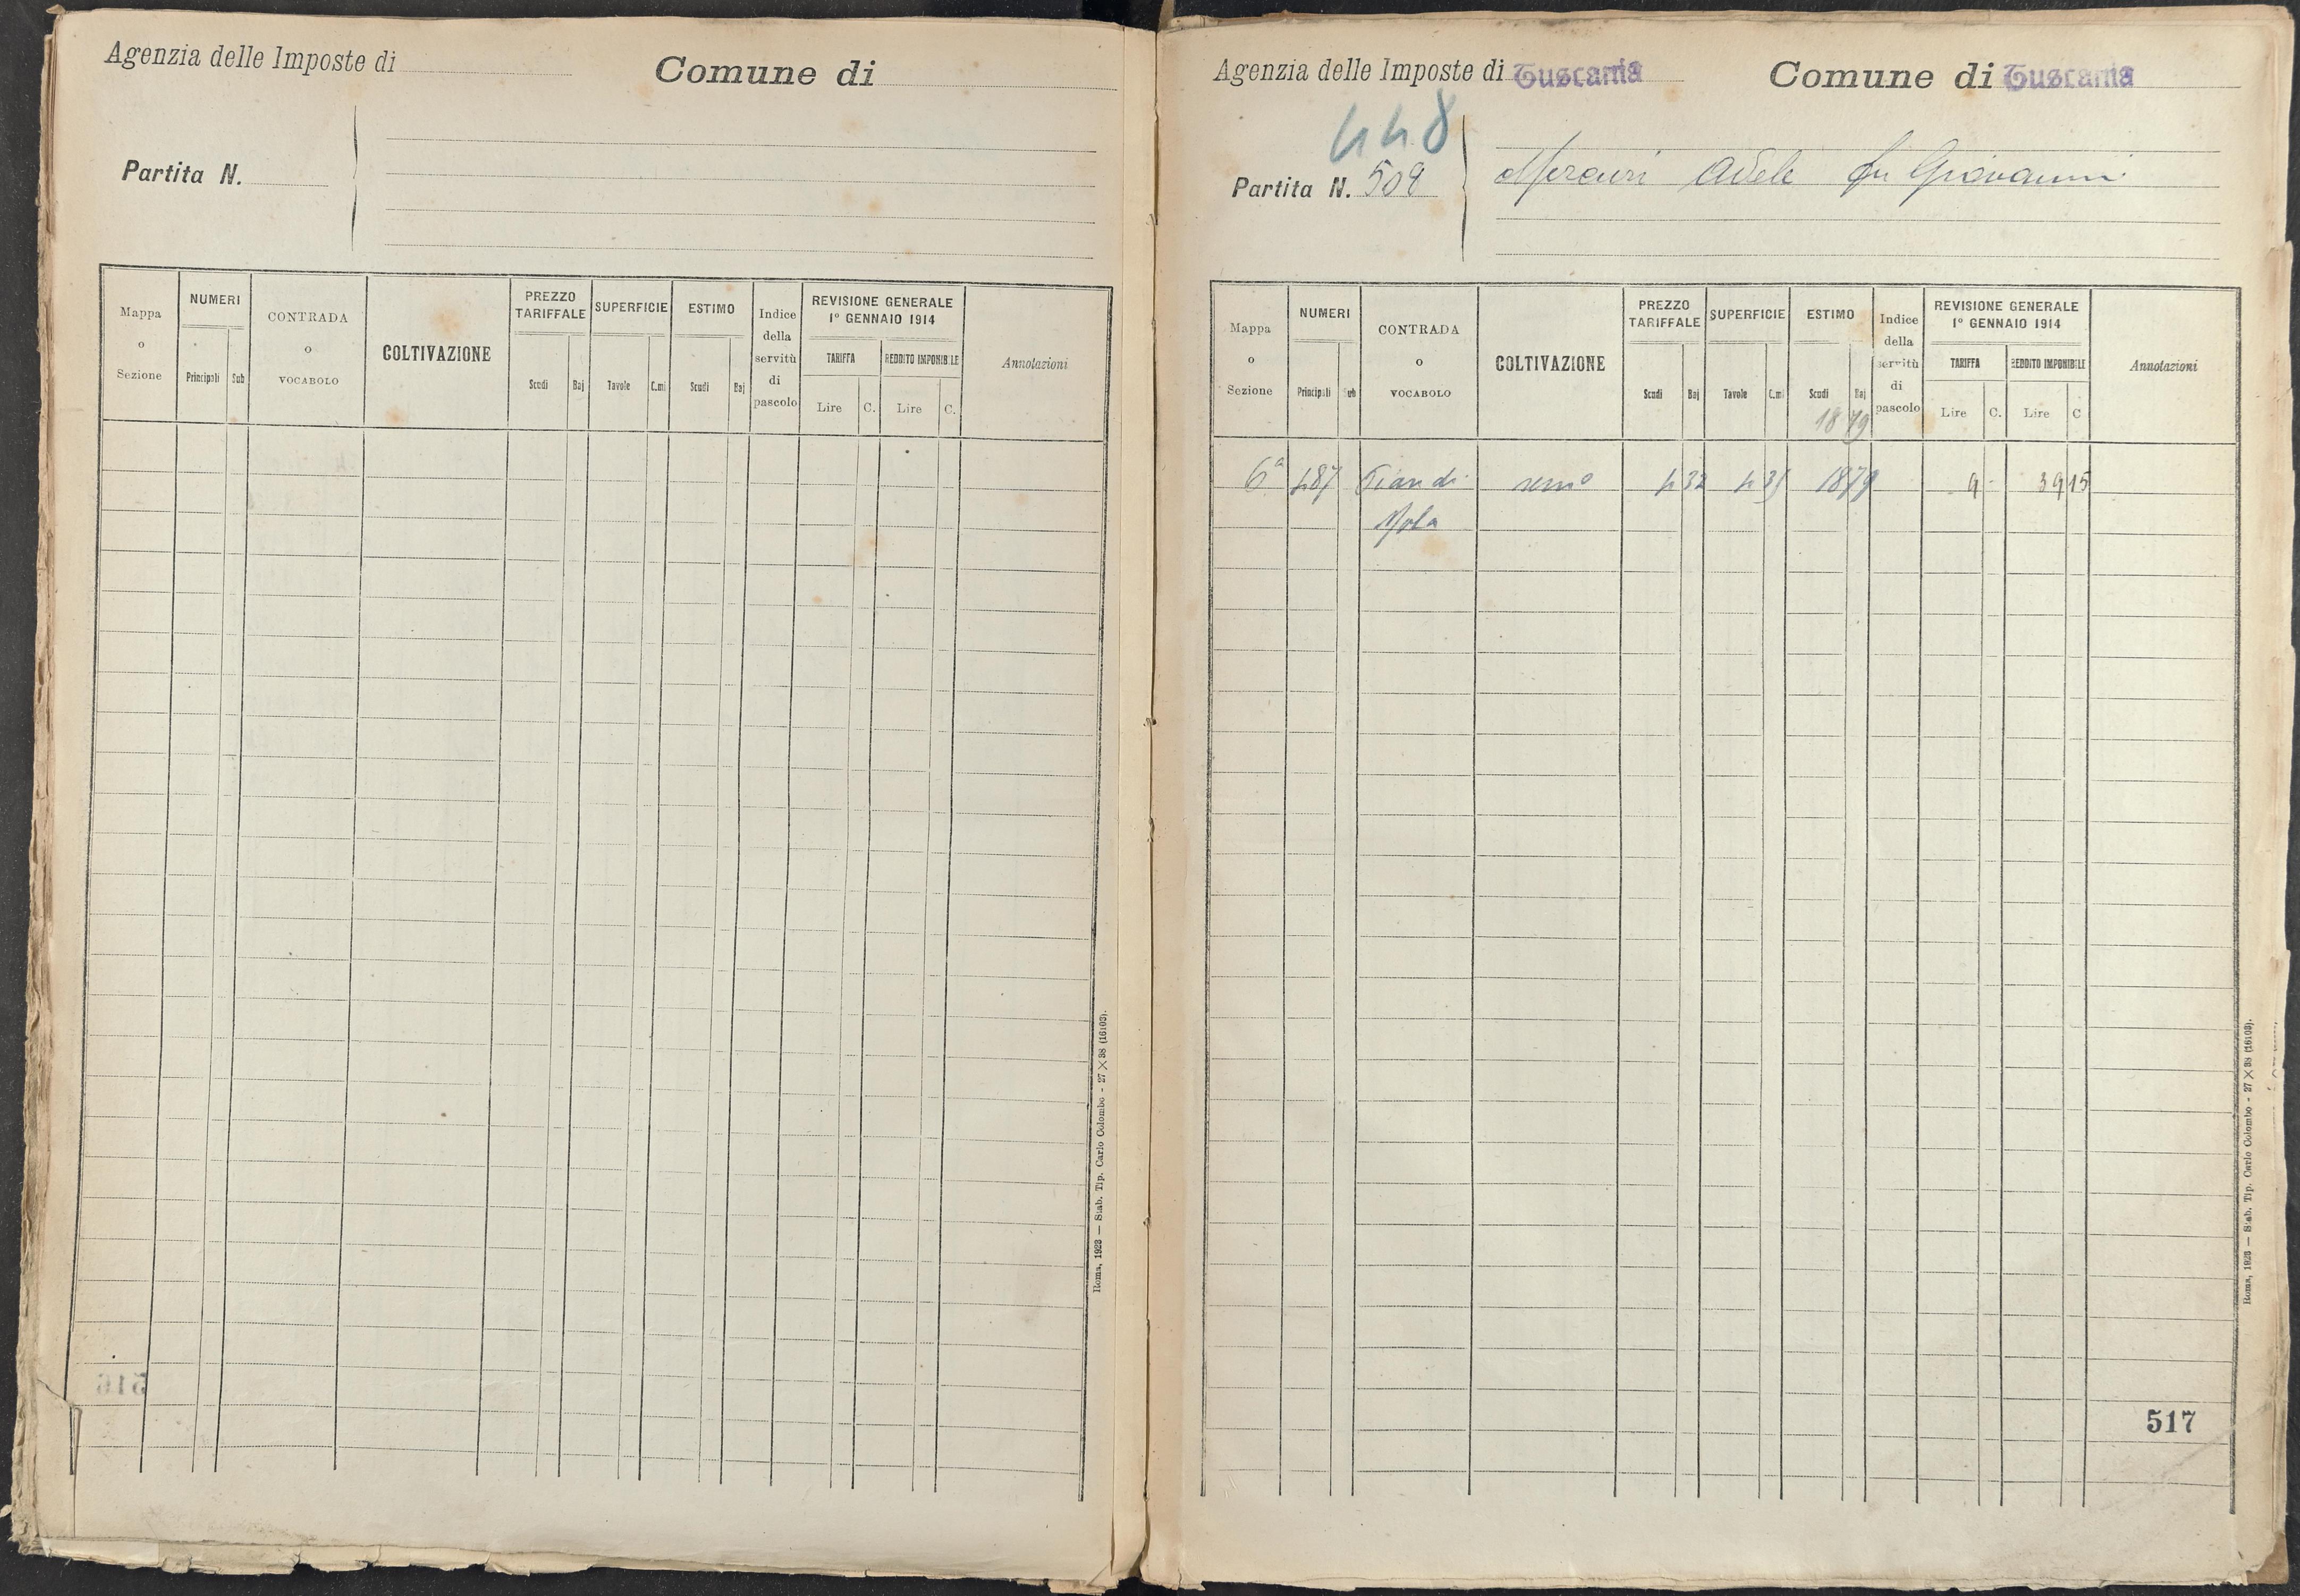 Agenzia delle Imposte di
Comune di
Partita N.
Mappa o Sezione
NUMERI
Principali Sub
CONTRADA O VOCABOLO
COLTIVAZIONE
PREZZO TARIFFALE
Scudi Baj
SUPERFICIE
Tavole C.mi
ESTIMO
Scudi Baj
Indice della servitù di pascolo
REVISIONE GENERALE
1º GENNAIO 1914
TARIFFA REDDITO IMPONIBILE
Lire C. Lire C.
Annotazioni
Roma, 1923 — Stab. Tip. Carlo Colombo - 27 × 38 (16103).
516
Agenzia delle Imposte di Tuscania
Comune di Tuscania
448
Partita N. 508
Mercuri Adele fu Giovanni
Mappa o Sezione
NUMERI
Principali Sub
CONTRADA O VOCABOLO
COLTIVAZIONE
PREZZO TARIFFALE
Scudi Baj
SUPERFICIE
Tavole C.mi
ESTIMO
Scudi Baj
1879
Indice della servitù di pascolo
REVISIONE GENERALE
1º GENNAIO 1914
TARIFFA REDDITO IMPONIBILE
Lire C. Lire C
Annotazioni
6ª 487 Pian di semo 4 32 4 35 18 79 9 - 39 15
Mola
Roma, 1923 — Stab. Tip. Carlo Colombo - 27 × 38 (16103).
517